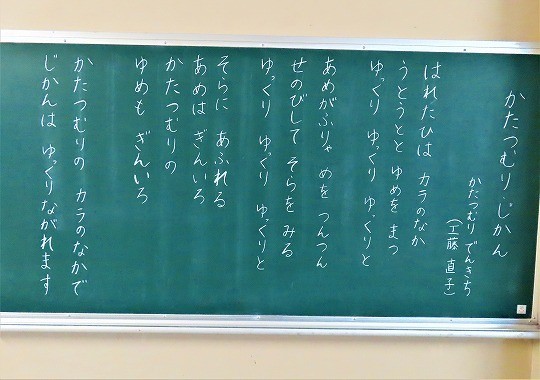 かたつむり・じかん
かたつむり でんきち
（工藤 直子）
はれたひは カラのなか
うとうとと ゆめを まつ
ゆっくり ゆっくり ゆっくりと
あめがふりゃ めを つんつん
せのびして そらを みる
ゆっくり ゆっくり ゆっくりと
そらに あふれる
あめは ぎんいろ
かたつむりの
ゆめも ぎんいろ
かたつむりの カラのなかで
じかんは ゆっくり ながれます